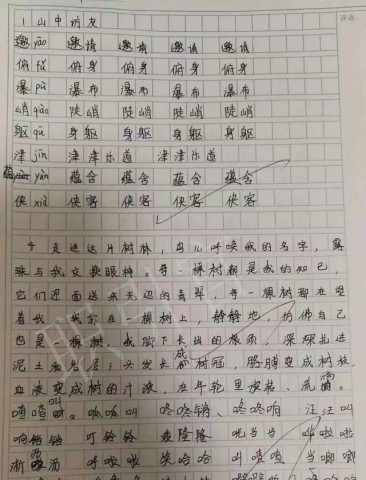 1 山中访友
邀 yāo 邀请 邀请 邀请 邀请
俯 fǔ 俯身 俯身 俯身 俯身
瀑 pù 瀑布 瀑布 瀑布 瀑布
峭 qiào 陡峭 陡峭 陡峭 陡峭
躯 qū 身躯 身躯 身躯 身躯
津 jīn 津津乐道 津津乐道
蕴 yùn 蕴含 蕴含 蕴含 蕴含
侠 xiá 侠客 侠客 侠客 侠客
4 走进这片树林,鸟儿呼唤我的名字,露
珠与我交换眼神。每一棵树都是我的知己,
它们迎面送来无边的青翠,每一棵树都在望
着我。我靠在一棵树上,静静地,仿佛自己
也是一棵树。我脚下长出的根须,深深扎进
泥土和岩层;头发长成树冠,胳膊变成树枝,
血液变成树的汁液,在年轮里旋转、流淌。
喳喳叫 呱呱叫 咚咚锵 咚咚响 汪汪叫
响铛铛 叮铃铃 轰隆隆 咣当当 哗啦啦
淅沥沥 呼啦啦 笑哈哈 叫喳喳 当啷啷